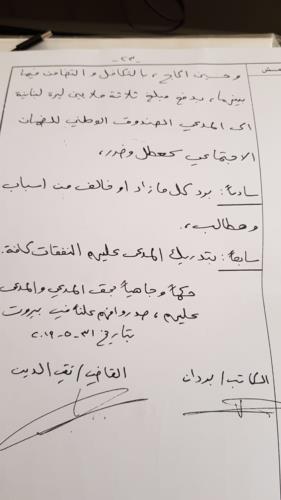 -٢٣-
وحسين الحاج، بالتكافل والتضامن فيما
بينهما، بدفع مبلغ ثلاثة ملايين ليرة لبنانية
الى المدعي الصندوق الوطني للضمان
الاجتماعي كعطل وضرر،
سادساً: برد كل ما زاد او خالف من اسباب
ومطالب،
سابعاً: بتدريك المدعى عليهم النفقات كافة.
حكماً وجاهياً بحق المدعي والمدعى
عليهم، صدر وافهم علناً في بيروت
بتاريخ ٣١-٥-٢٠١٩
الكاتب/ بدران
القاضي/ تقي الدين